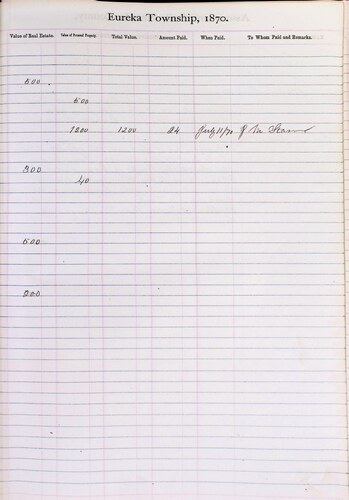 Eureka Township, 1870.
Value of Real Estate. Value of Personal Property. Total Value. Amount Paid. When Paid. To Whom Paid and Remarks.
500
500
1200 1200 24 July 11/70 J M
300
40
500
200